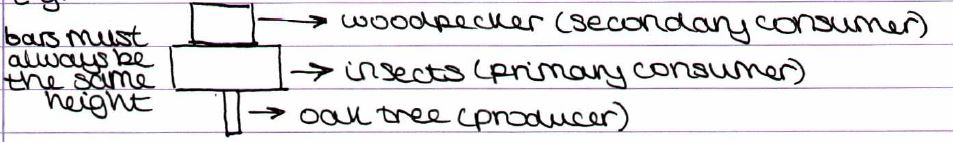 woodpecker (secondary consumer)
bars must
always be
the same
height
insects (primary consumer)
oak tree (producer)